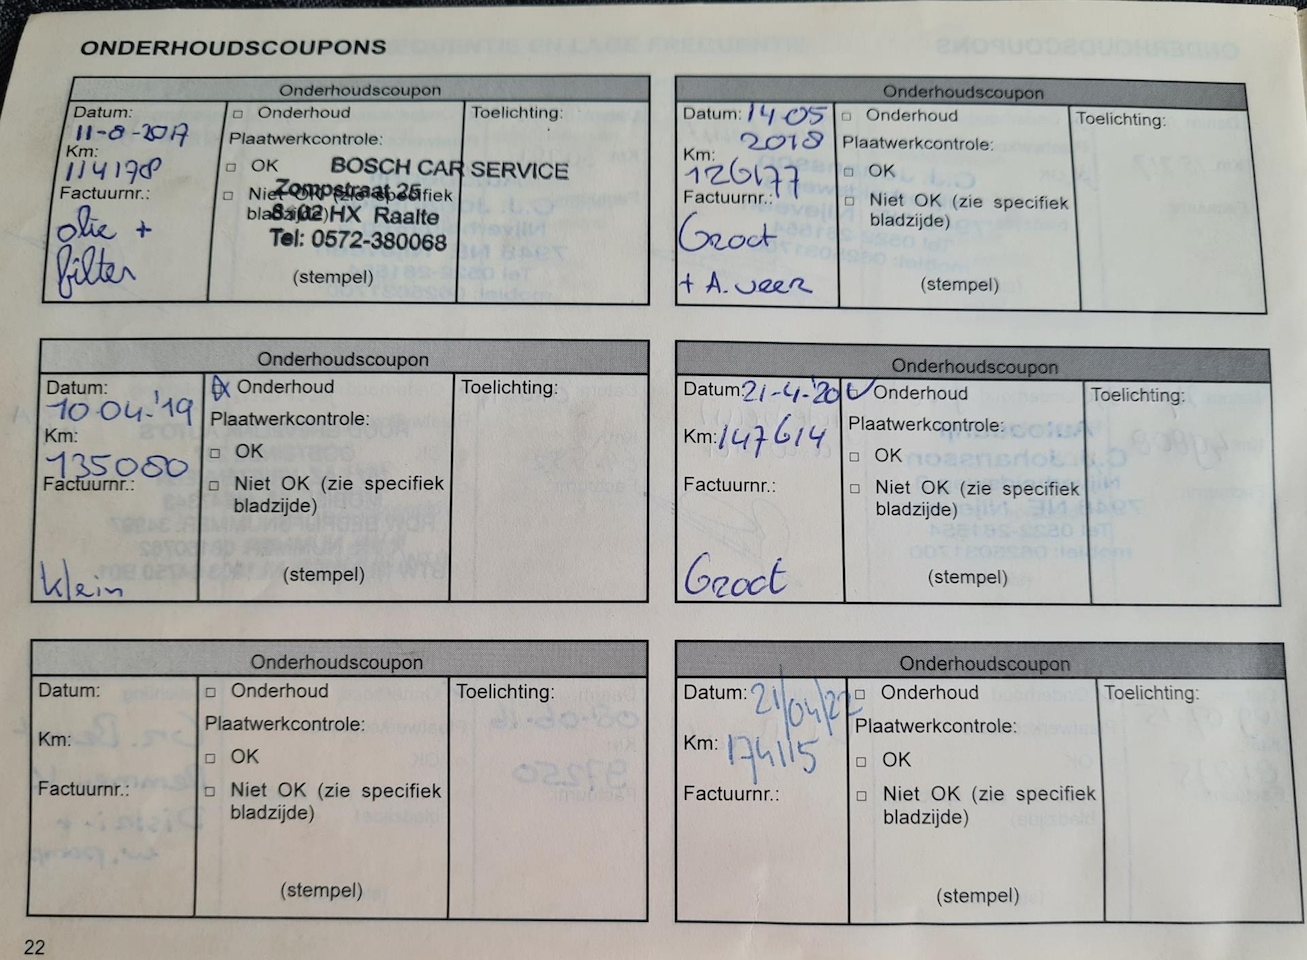 ONDERHOUDSCOUPONS
Onderhoudscoupon
Datum:
11-8-2017
Km:
114178
Factuurnr.:
olie +
filter
□ Onderhoud
Plaatwerkcontrole:
□ OK
□ Niet OK (zie specifiek
bladzijde)
BOSCH CAR SERVICE
Zompstraat 25
8102 HX Raalte
Tel: 0572-380068
(stempel)
Toelichting:
Onderhoudscoupon
Datum: 14-05
2018
Km:
126177
Factuurnr.:
Groot
+ A. veer
□ Onderhoud
Plaatwerkcontrole:
□ OK
□ Niet OK (zie specifiek
bladzijde)
(stempel)
Toelichting:
Onderhoudscoupon
Datum:
10-04-'19
Km:
135080
Factuurnr.:
klein
Onderhoud
Plaatwerkcontrole:
□ OK
□ Niet OK (zie specifiek
bladzijde)
(stempel)
Toelichting:
Onderhoudscoupon
Datum: 21-4-'20
Km: 147614
Factuurnr.:
Groot
Onderhoud
Plaatwerkcontrole:
□ OK
□ Niet OK (zie specifiek
bladzijde)
(stempel)
Toelichting:
Onderhoudscoupon
Datum:
Km:
Factuurnr.:
□ Onderhoud
Plaatwerkcontrole:
□ OK
□ Niet OK (zie specifiek
bladzijde)
(stempel)
Toelichting:
Onderhoudscoupon
Datum: 21/04/22
Km: 174115
Factuurnr.:
□ Onderhoud
Plaatwerkcontrole:
□ OK
□ Niet OK (zie specifiek
bladzijde)
(stempel)
Toelichting:
22